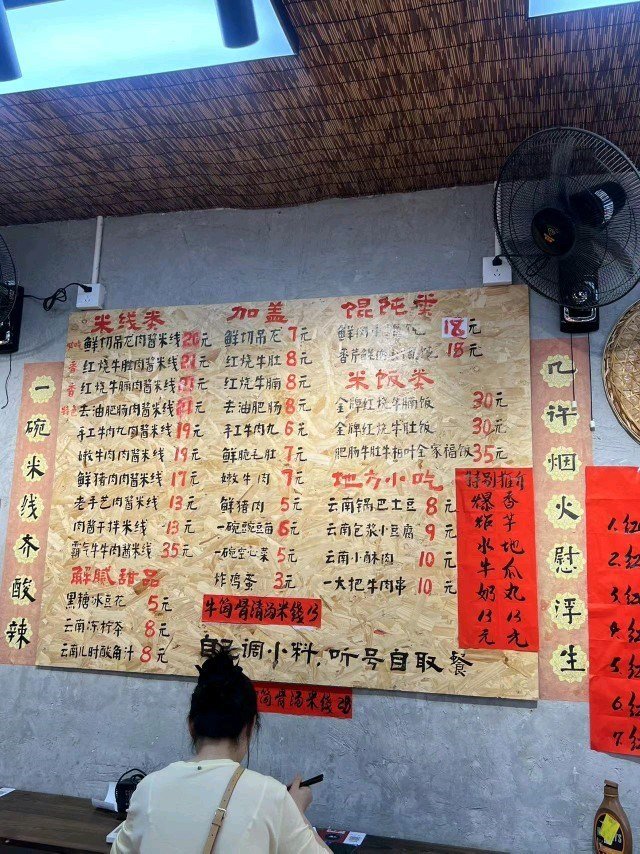 一碗米线齐酸辣
米线类
鲜切吊龙肉酱米线 26元
红烧牛肚肉酱米线 21元
红烧牛腩肉酱米线
去油肥肠肉酱米线 21元
手工牛肉丸肉酱米线 19元
嫩牛肉肉酱米线 19元
鲜猪肉肉酱米线 17元
老手艺肉酱米线 13元
肉酱干拌米线 13元
霸气牛牛肉酱米线 35元
解腻甜品
黑糖冰豆花 5元
云南冻柠茶 8元
云南儿时酸角汁 8元
加盖
鲜切吊龙 7元
红烧牛肚 8元
红烧牛腩 8元
去油肥肠 8元
手工牛肉丸 6元
鲜脆毛肚 7元
嫩牛肉 7元
鲜猪肉 5元
一碗豌豆角 6元
一碗空心菜 5元
炸鸡蛋 3元
牛筒骨清汤米线 13
馄饨类
18元
18元
米饭类
金牌红烧牛腩饭 30元
金牌红烧牛肚饭 30元
肥肠牛肚牛腩叶全家福饭 35元
地方小吃
云南锅巴土豆 8元
云南包浆小豆腐 9元
云南小酥肉 10元
一大把牛肉串 10元
特别推介
香芋地瓜丸 13元
爆炸水牛奶 13元
自己调小料，听号自取餐
筒骨汤米线 28
几许烟火慰浮生
1.红
2.红
3.红
4.红
5.红
6.红
7.红